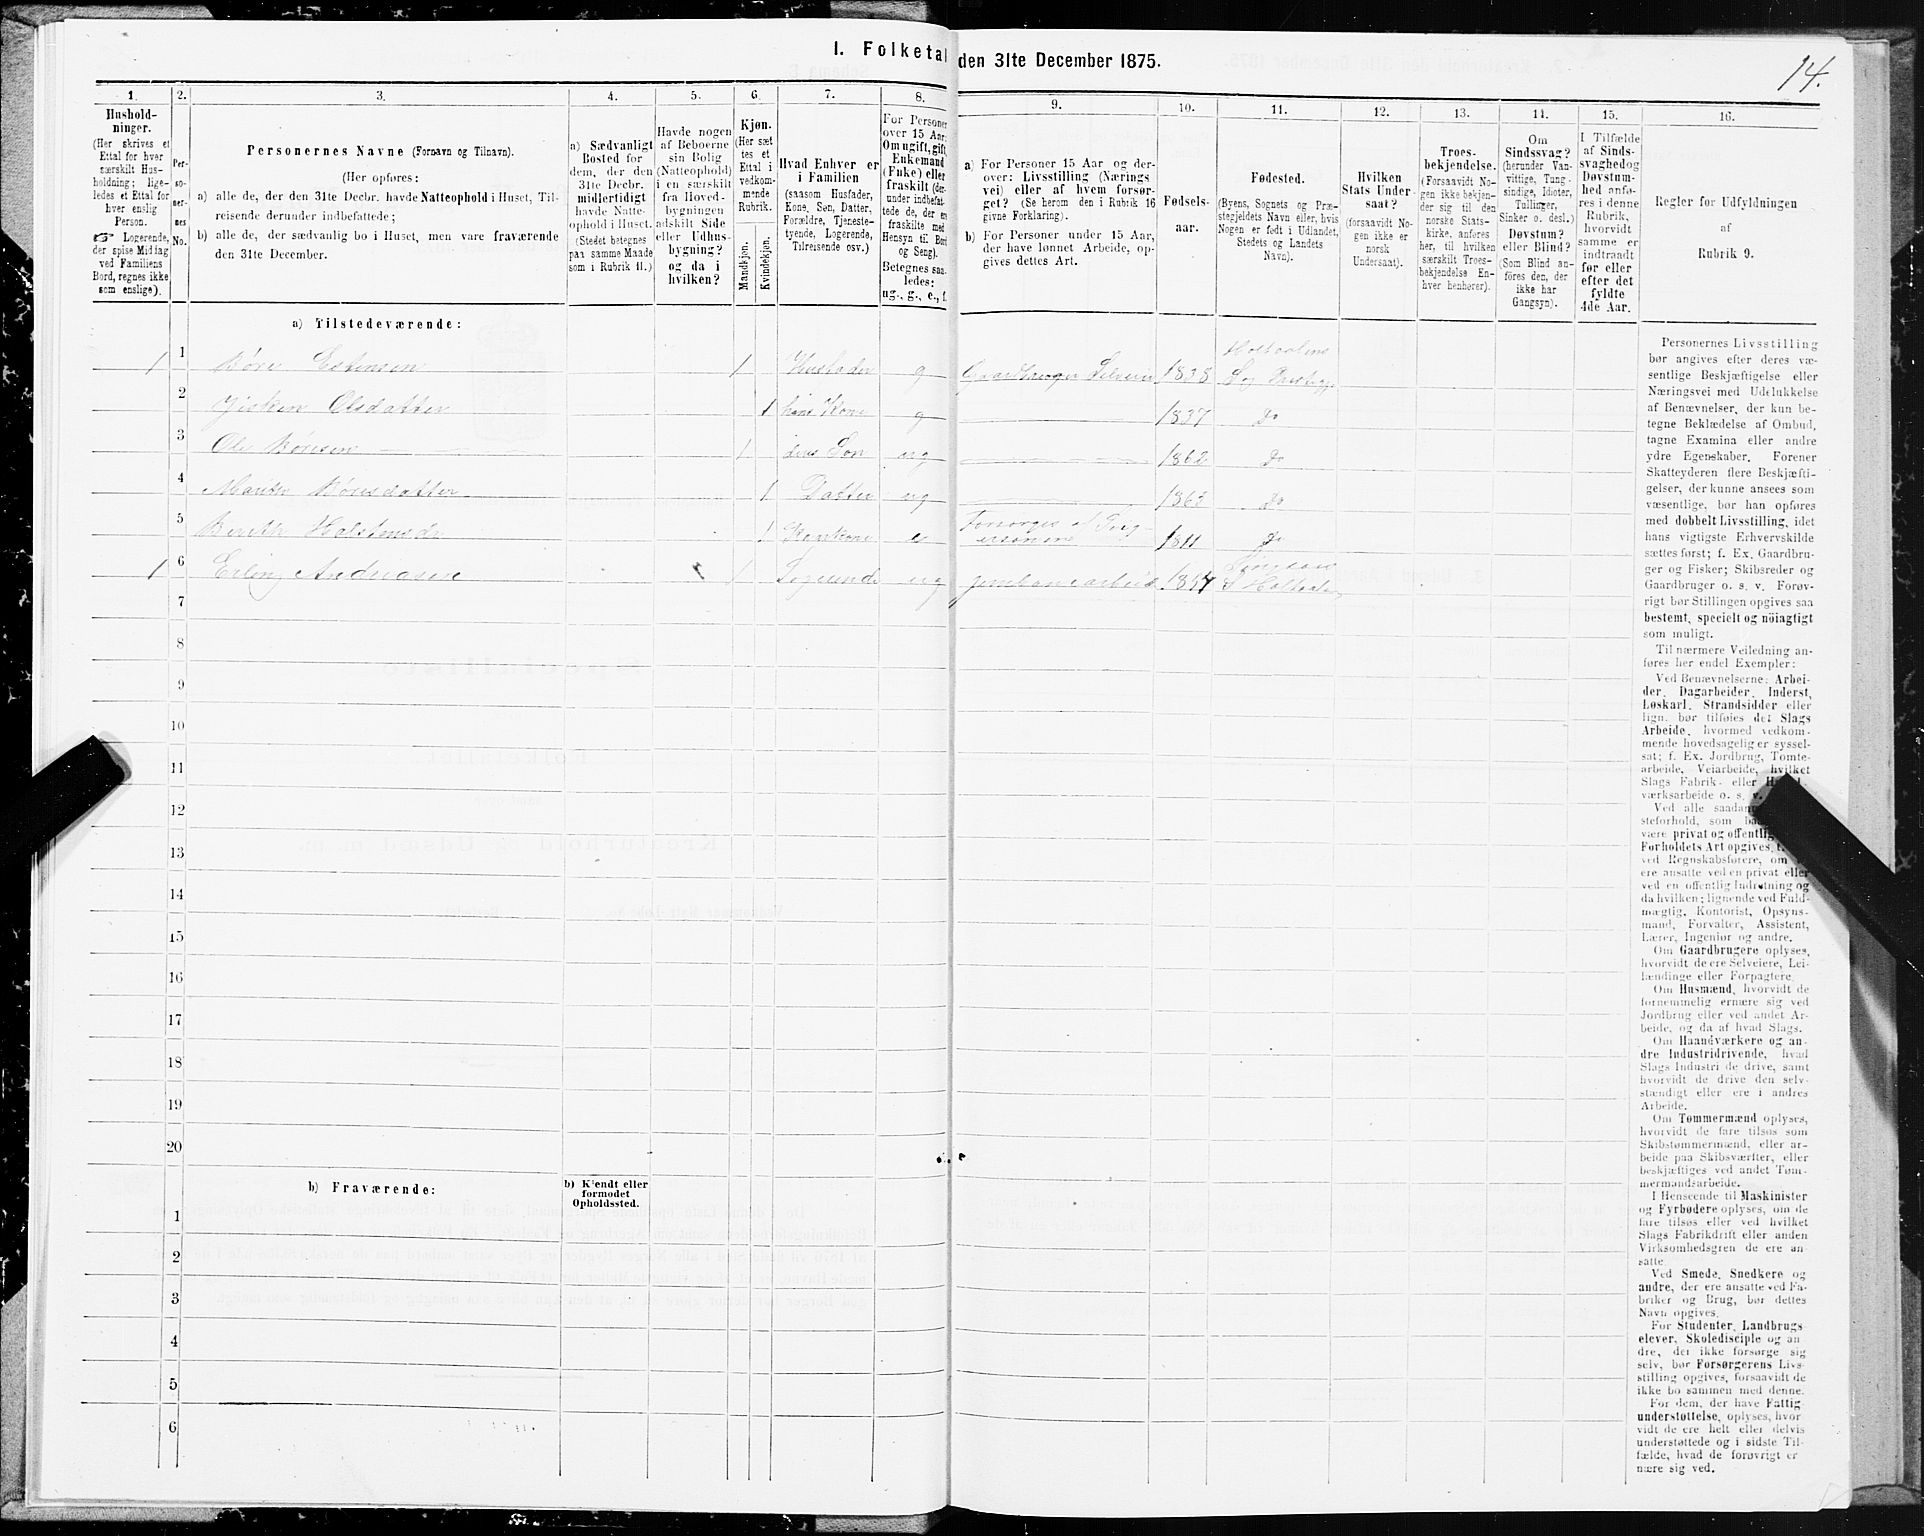 I. Folketal den 31te December 1875.
14.
1.
Hushold-
ninger.
(Her skrives et
Ettal for hver
særskilt Hus-
holdning; lige-
ledes et Ettal for
hver enslig
Person.
☞ Logerende,
der spise Middag
ved Familiens
Bord, regnes ikke
som enslige).
2.
Per-
so-
ner-
nes
No.
3.
Personernes Navne (Fornavn og Tilnavn).
(Her opføres:
a) alle de, der den 31te Decbr. havde Natteophold i Huset, Til-
reisende derunder indbefattede;
b) alle de, der sædvanlig bo i Huset, men vare fraværende
den 31te December.
4.
a) Sædvanligt
Bosted for
dem, der den
31te Decbr.
midlertidigt
havde Natte-
ophold i Huset.
(Stedet betegnes
paa samme Maade
som i Rubrik 11.)
5.
Havde nogen
af Beboerne
sin Bolig
(Natteophold)
i en særskilt
fra Hoved-
bygningen
adskilt Side
eller Udhus-
bygning?
og da i
hvilken?
6.
Kjøn.
(Her sæt
tes et
Ettal i
vedkom-
mende
Rubrik.
Mandkjøn.
Kvindekjøn.
7.
Hvad Enhver er
i Familien
(saasom Husfader,
Kone, Søn, Datter,
Forældre, Tjeneste-
tyende, Logerende,
Tilreisende osv.)
8.
For Personer
over 15 Aar:
Om ugift, gift,
Enkemand
(Enke) eller
fraskilt (der-
under indbefat-
tede de, der ere
fraskilte med
Hensyn til Bord
og Seng).
Betegnes saa-
ledes:
ug., g., e., f.
9.
a) For Personer 15 Aar og der-
over: Livsstilling (Nærings
vei) eller af hvem forsør-
get? (Se herom den i Rubrik 16
givne Forklaring).
b) For Personer under 15 Aar,
der have lønnet Arbeide, op-
gives dettes Art.
10.
Fødsels-
aar.
11.
Fødested.
(Byens, Sognets og Præ-
stegjeldets Navn eller, hvis
Nogen er født i Udlandet,
Stedets og Landets
Navn).
12.
Hvilken
Stats Under-
saat?
(forsaavidt No-
gen ikke er
norsk
Undersaat).
13.
Troes-
bekjendelse.
(Forsaavidt No-
gen ikke bekjen-
der sig til den
norske Stats-
kirke, anføres
her, til hvilken
særskilt Troes-
bekjendelse En-
hver henhører).
14.
Om
Sindssvag?
(herunder Van-
vittige, Tung-
sindige, Idioter,
Tullinger,
Sinker o. desl.)
Døvstum?
eller Blind?
(Som Blind an-
føres den, der
ikke har
Gangsyn).
15.
I Tilfælde
af Sinds-
svaghed og
Døvstum-
hed anfø-
res i denne
Rubrik,
hvorvidt
samme er
indtraadt
før eller
efter det
fyldte
4de Aar.
16.
Regler for Udfyldningen
af
Rubrik 9.
a) Tilstedeværende:
1 1 Børe Estensen 1 Husfader g Gaardbruger Selveier 1838 Holtaalens
S og Prestegj
2 Olsdatter 1 hans Kone g 1837 Do
3 Ole Børesen 1 deres Søn ug 1862 Do
4 Marith Børesdatter 1 Datter ug 1863 Do
5 Berith Halstensdr 1 Kaarkone e Forsørges af 1811 Do
1 6 Erling Andreasen 1 Logerende ug jernbanearbeid 1857
7
8
9
10
11
12
13
14
15
16
17
18
19
20
b) Fraværende:
b) Kjendt eller
formodet
Opholdssted.
1
2
3
4
5
6
Personernes Livsstilling
bør angives efter deres væ-
sentlige Beskjæftigelse eller
Næringsvei med Udelukkelse
af Benævnelser, der kun be-
tegne Beklædelse af Ombud,
tagne Examina eller andre
ydre Egenskaber. Forener
Skatteyderen flere Beskjæfti-
gelser, der kunne ansees som
væsentlige, bør han opføres
med dobbelt Livsstilling, idet
hans vigtigste Erhvervskilde
sættes først; f. Ex. Gaardbru-
ger og Fisker; Skibsreder og
Gaardbruger o. s. v. Forøv-
rigt bør Stillingen opgives saa
bestemt, specielt og nöiagtigt
som muligt.
Til nærmere Veiledning an-
føres her endel Exempler:
Ved Benævnelserne: Arbei-
der, Dagarbeider, Inderst,
Løskarl, Strandsidder eller
lign. bør tilføies det Slags
Arbeide, hvormed vedkom-
mende hovedsagelig er syssel-
sat; f. Ex. Jordbrug, Tomte-
arbeide, Veiarbeide, hvilket
Slags Fabrik- eller
værksarbeide o. s. v.
Ved alle saadan
steforhold, som
være privat og offentlig
Forholdets Art opgives,
ved Regnskabsførere, om
ere ansatte ved en privat eller
ved en offentlig Indretning og
da hvilken; lignende ved Fuld-
mægtig, Kontorist, Opsyns-
mand, Forvalter, Assistent,
Lærer, Ingeniør og andre.
Om Gaardbrugere oplyses,
hvorvidt de ere Selveiere, Lei-
lændinge eller Forpagtere.
Om Husmænd, hvorvidt de
fornemmelig ernære sig ved
Jordbrug eller ved andet Ar-
beide, og da af hvad Slags.
Om Haandværkere og an-
dre Industridrivende, hvad
Slags Industri de drive, samt
hvorvidt de drive den selv-
stændigt eller ere i andres
Arbeide.
Om Tømmermænd oplyses,
hvorvidt de fare tilsøs som
Skibstømmermænd, eller ar-
beide paa Skibsværfter, eller
beskjæftiges ved andet Tøm-
mermandsarbeide.
I Henseende til Maskinister
og Fyrbødere oplyses, om de
fare tilsøs eller ved hvilket
Slags Fabrikdrift eller anden
Virksomhedsgren de ere an-
satte.
Ved Smede, Snedkere og
andre, der ere ansatte ved Fa-
briker og Brug, bør dettes
Navn opgives.
For Studenter, Landbrugs
elever, Skoledisciple og an
dre, der ikke forsørge sig
selv, bør Forsørgerens Livs-
stilling opgives, forsaavidt de
ikke bo sammen med denne.
For dem, der have Fattig-
understøttelse, oplyses, hvor
vidt de ere helt eller delvis
understøttede og i sidste Til-
fælde, hvad de forøvrigt er
nære sig ved.